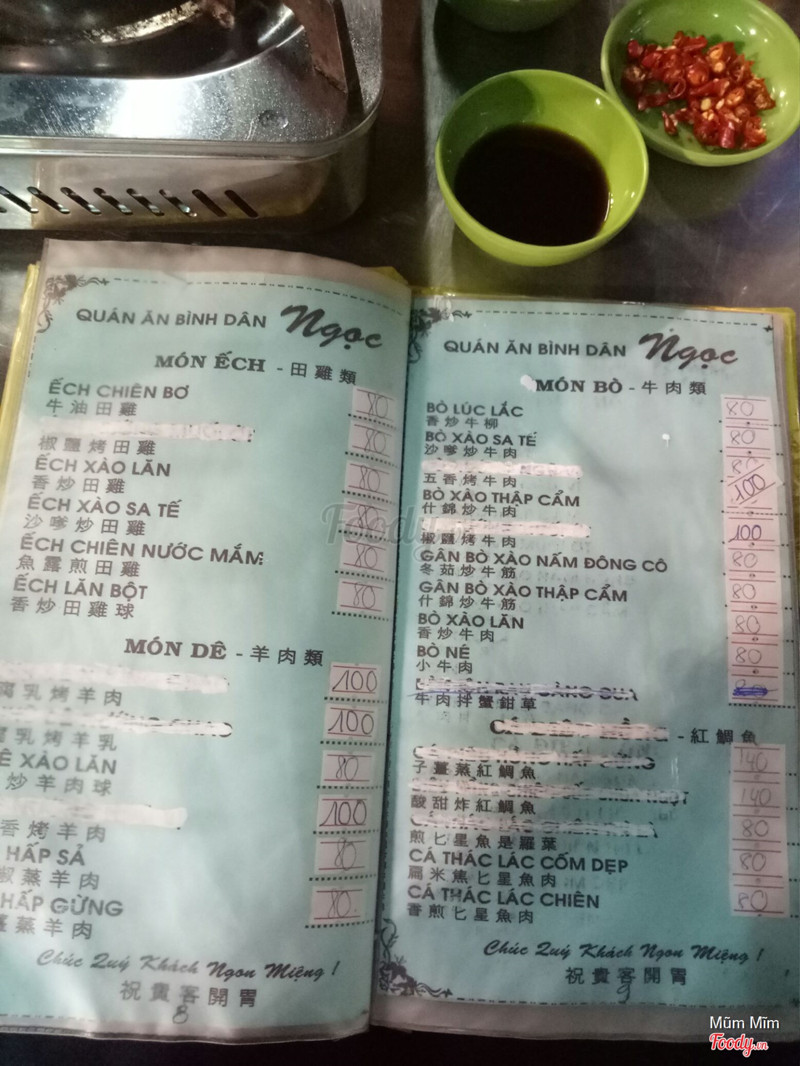 QUÁN ĂN BÌNH DÂN Ngọc
MÓN ẾCH - 田雞類
ẾCH CHIÊN BƠ 80
牛油田雞
80
椒鹽烤田雞
ẾCH XÀO LĂN 80
香炒田雞
ẾCH XÀO SA TẾ 80
沙爹炒田雞
ẾCH CHIÊN NƯỚC MẮM 80
魚露煎田雞
ẾCH LĂN BỘT 80
香炒田雞球
MÓN DÊ - 羊肉類
100
乳烤羊肉
100
乳烤羊乳
XÀO LĂN 80
炒羊肉球
100
香烤羊肉
HẤP SẢ 80
蒸羊肉
HẤP GỪNG 80
蒸羊肉
Chúc Quý Khách Ngon Miệng !
祝貴客開胃
8
QUÁN ĂN BÌNH DÂN Ngọc
MÓN BÒ - 牛肉類
BÒ LÚC LẮC 80
香炒牛柳
BÒ XÀO SA TẾ 80
沙爹炒牛肉
80
100
五香烤牛肉
BÒ XÀO THẬP CẨM
什錦炒牛肉
100
椒鹽烤牛肉
GÂN BÒ XÀO NẤM ĐÔNG CÔ 80
冬茹炒牛筋
GÂN BÒ XÀO THẬP CẨM 80
什錦炒牛筋
BÒ XÀO LĂN 80
香炒牛肉
BÒ NÉ 80
小牛肉
牛肉拌蟹鉗草
- 紅鯛魚
140
子薑蒸紅鯛魚
140
酸甜炸紅鯛魚
80
煎匕星魚是羅葉
CÁ THÁC LÁC CỐM DẸP 80
扁米焦匕星魚肉
CÁ THÁC LÁC CHIÊN 80
香煎匕星魚肉
Chúc Quý Khách Ngon Miệng !
祝貴客開胃
9
Foody
Mũm Mĩm
Foody.vn